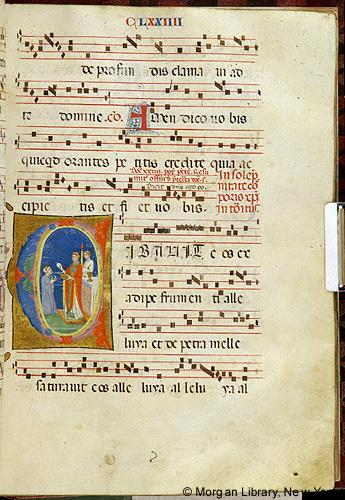 CLXXIIII
de profun dis clama ui ad
te domine. Amen dico uo bis
quicqd orantes pe titis credite quia ac
cipie tis et fi et uo bis.
In solep
nitate co
poris xpi
IBAUIT e os ex
adipe frumen ti alle
luya et de petra melle
saturauit eos alle luya al lelu ya al
© Morgan Library, New Yo